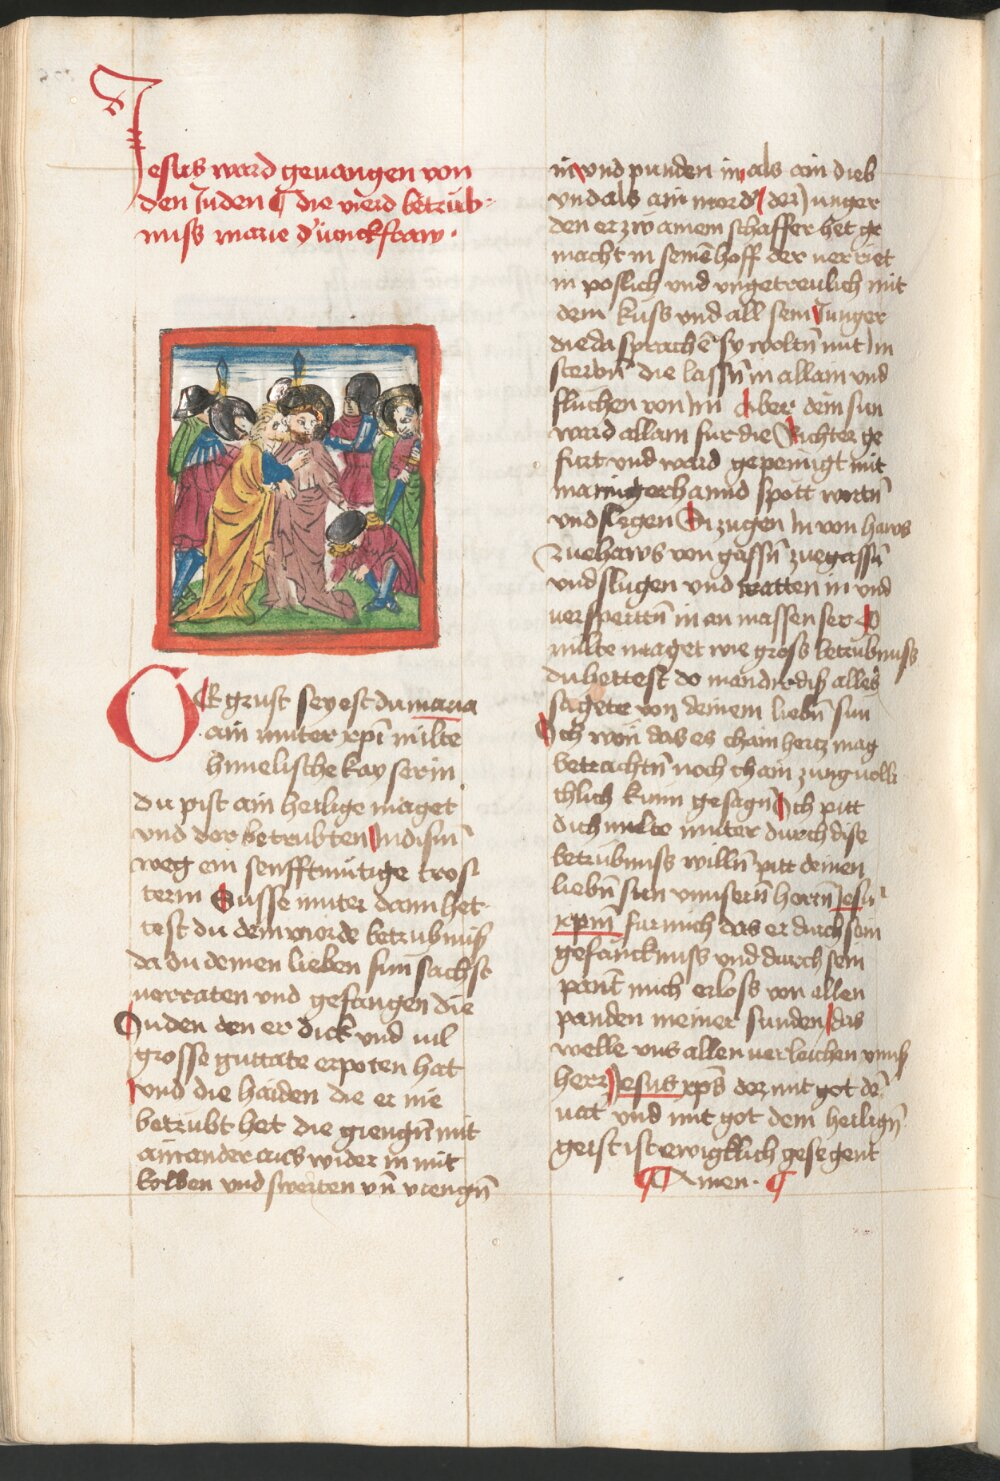 Jesus ward geuangen von
den Juden ¶ die vierd betrüb-
nuss marie d' iunckfraw ·
Gegrust seyest du maria
ain muter xp̄i milte
himelische kayserin
du pist ain heilige maget
vnd der betrubten Jn disem
weg ein senfftmütige trost
terin Susse muter dann het
test du dem vierde betrubnuß
da du deinen lieben sun sachst
verraten vnd gefangen die
Juden den er dick vnd vil
grosse guttate erpoten hat
vnd die haiden die er nie
betrubt het die giengn̄ mit
ainander aus wider in mit
kolben vnd swerten vn̄ viengn̄
in vnd punden in als ain dieb
vnd als ain mord' der Junger
den er zw ainem schaffer het ge
macht in seinē hoff der verriet
in poslich vnd vngetreulich mit
dem kuss vnd all sein Junger
die da sprachē sy woltn̄ mit Jm
sterbn̄ die lassn̄ in allain vnd
fluchen von Jm Aber dein sun
ward allain fur die Richter ge
furt vnd ward gepeinigt mit
maniger hannd spott wortn̄
vnd slegen Si zugen Jn von haws
zue haws von gassn̄ zue gassn̄
vnd slugen vnd tratten in vnd
verspertn̄ in an massen ser O
milte maget wie gross betrubnuss
du hettest do man dir diß alles
sagete von deinem liebn̄ sun
Jch won das es chain hertz mag
betrachtn̄ noch chain zung volli
chlich kunn gesagn̄ Jch pitt
dich milte muter durch dise
betrubnuss willn̄ pitt deinen
liebn̄ sun vnnsern̄ herrn̄ Jesu
xp̄m̄ fur mich das er durch sein
gefancknuss vnd durch sein
pant mich erloss von allen
panden meiner sunden das
welle vns allen verleichen vnnß
herr Jesus xp̄s der mit got dē
vat' vnd mit got dem heilign̄
geist ist ewigklich gesegent
Amen · ¶